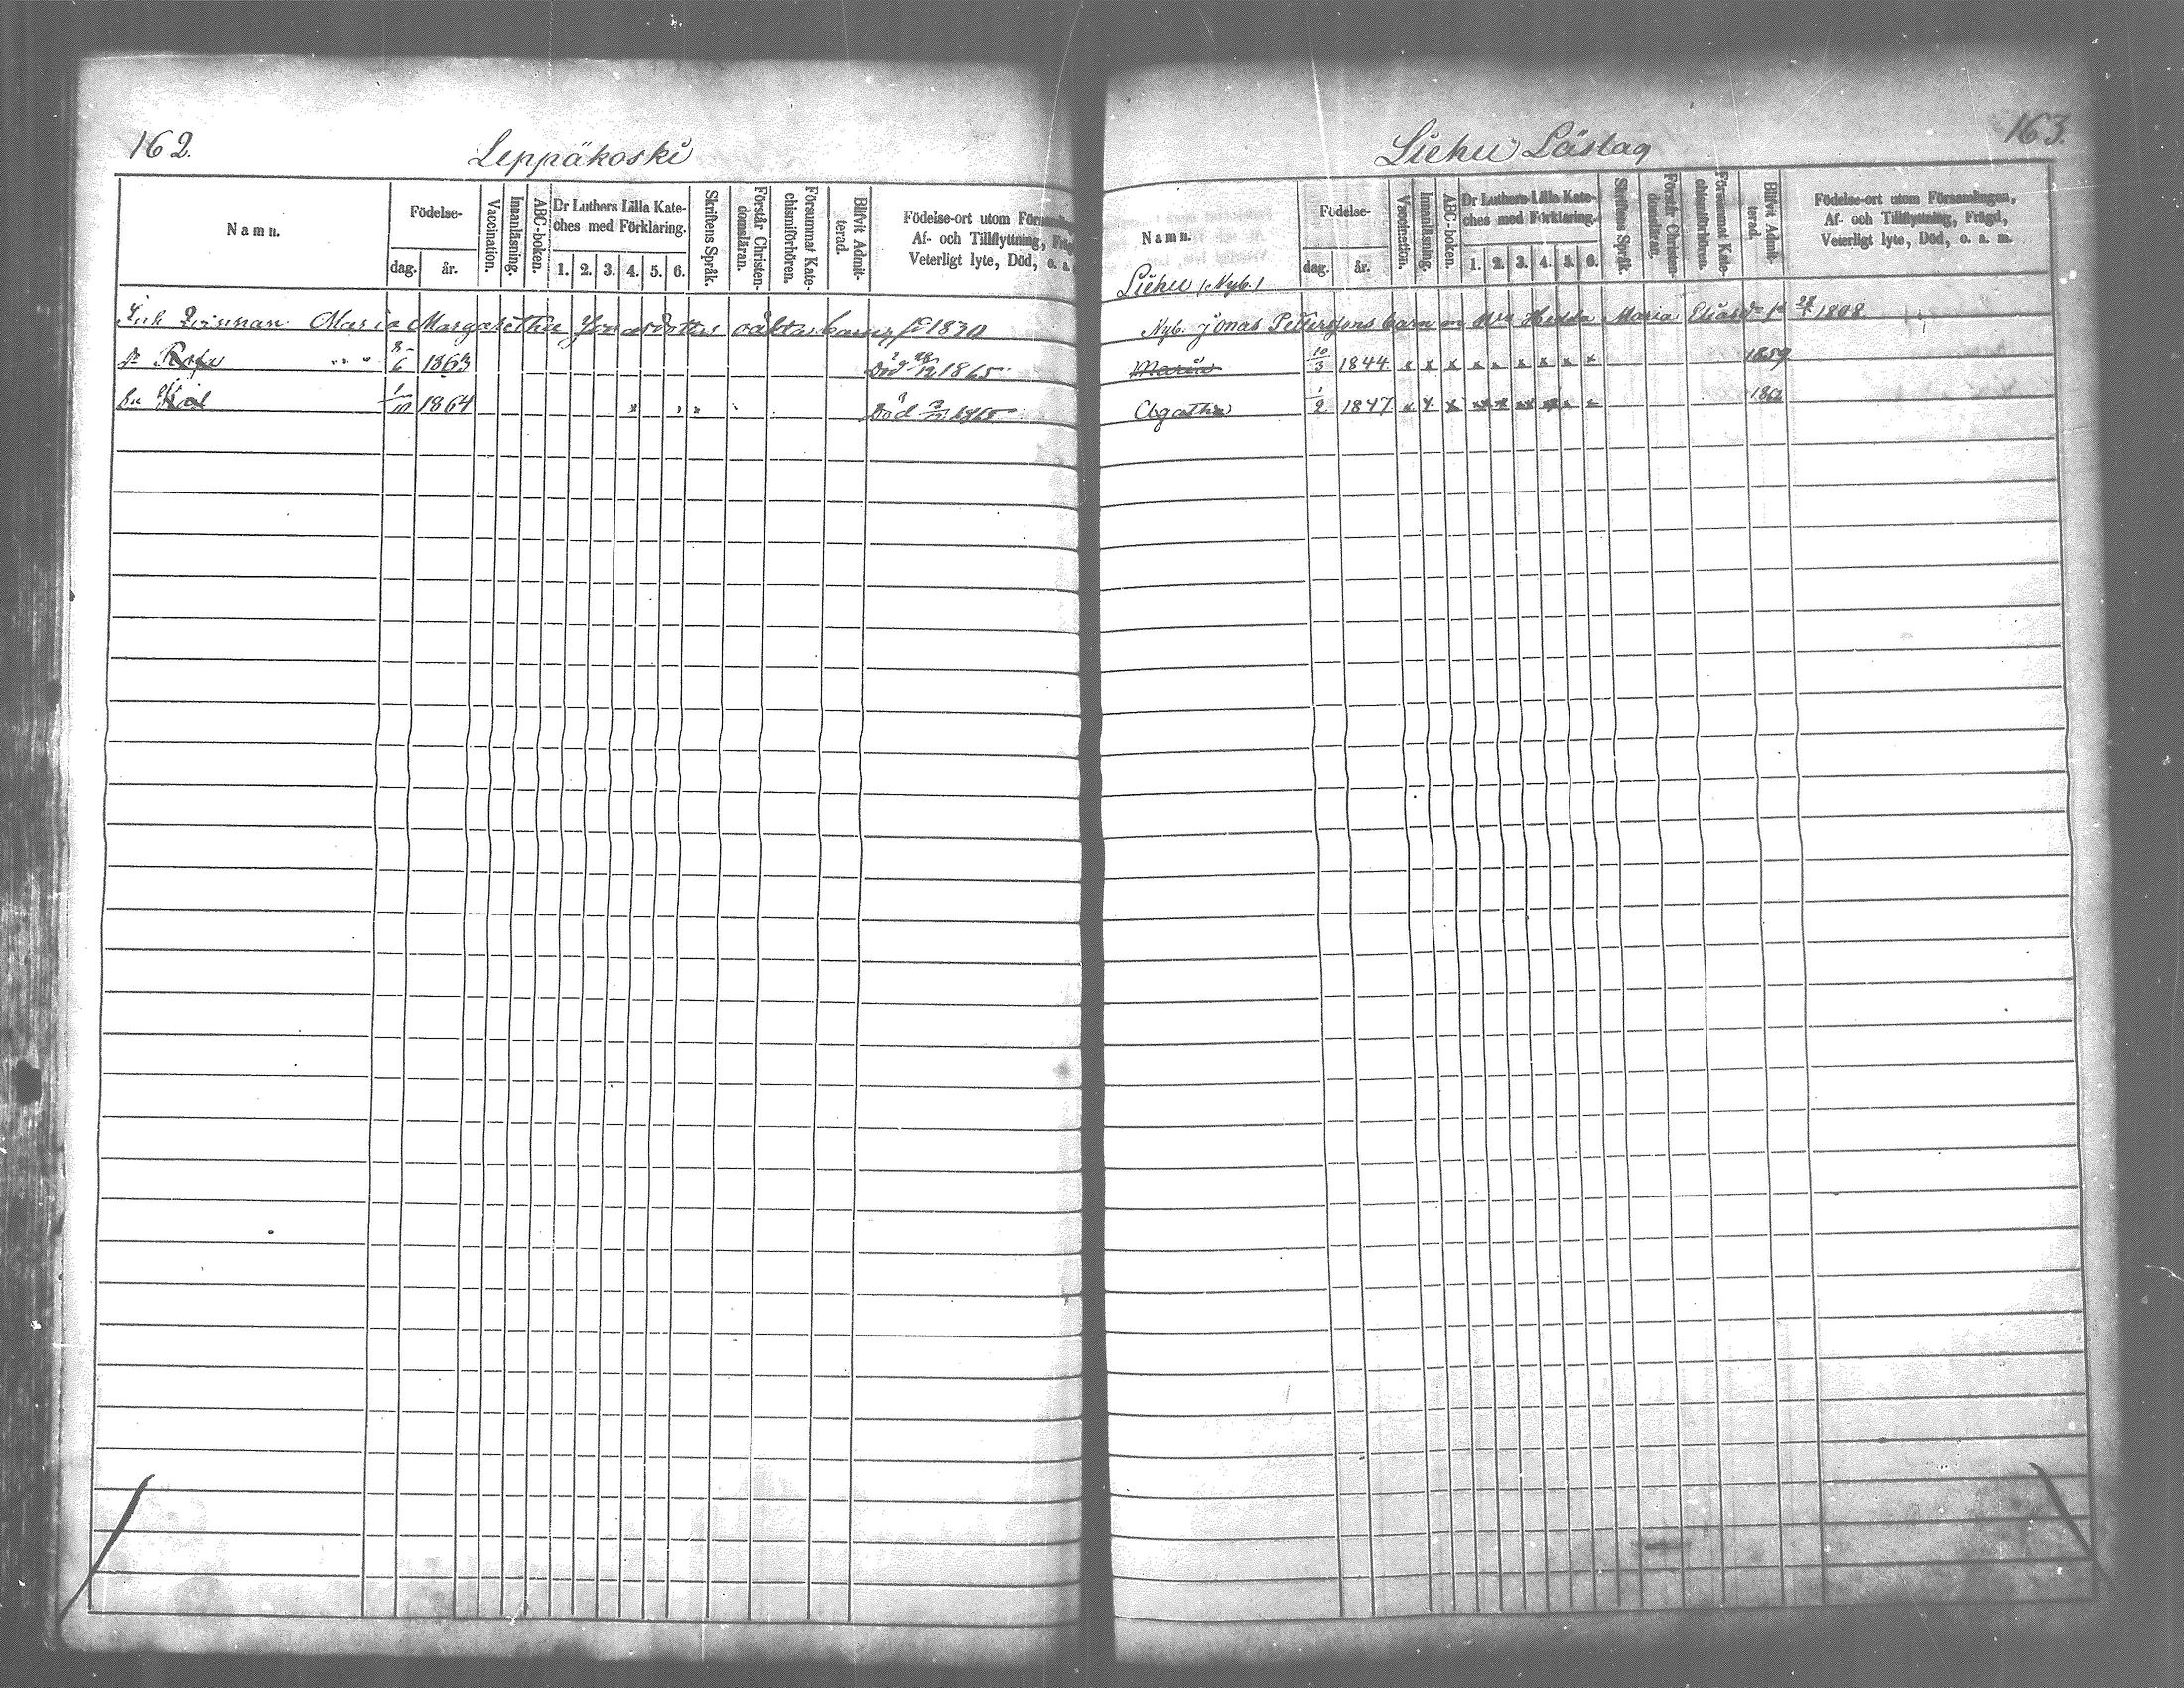 162.
Leppäkoski
Namn.
Födelse-
dag. år.
Vaccination.
Innanläsning.
ABC-boken.
Dr Luthers Lilla Kate-
ches med Förklaring.
1. 2. 3. 4. 5. 6.
Skriftens Språk.
Förstår Christen-
domsläran.
Försummat Kate-
chismiförhören.
Blifvit Admit-
terad.
Födelse-ort utom
Af- och Tillflyttning,
Veterligt lyte, Död, o. a.
Maria Margaretha Jonasdotter oäkta barn fd 1830
8/6 1863 Död 1865
1864 Död 1865
163.
Liehu Läslag
Namn.
Födelse-
dag. år.
Vaccination.
Innanläsning.
ABC-boken.
Dr Luthers Lilla Kate-
ches med Förklaring.
1. 2. 3. 4. 5. 6.
Skriftens Språk.
Förstår Christen-
domsläran.
Försummat Kate-
chismiförhören.
Blifvit Admit-
terad.
Födelse-ort utom Församlingen,
Af- och Tillflyttning, Frägd,
Veterligt lyte, Död, o. a. m.
Liehu (Nyb.)
Nyb. Jonas Pettersons barn m Hedda Maria 1808
Maria 10/3 1844 x x x x x x x x x 1859
Agatha 1/2 1847 x x x x x x x x